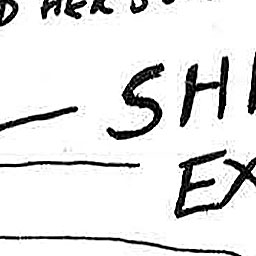 D HER
SH
EX